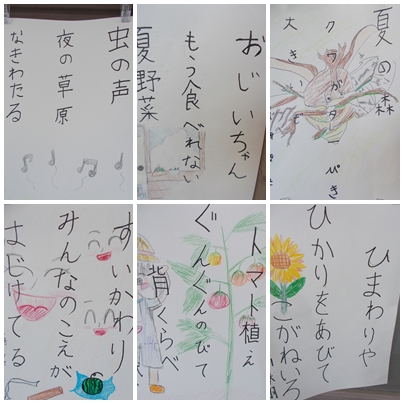 虫の声
夜の草原
なきわたる
おじいちゃん
もう食べれない
夏野菜
夏の森
クワガタ一ぴき
大きい
すいかわり
みんなのこえが
はじけてる
トマト植え
ぐんぐんのびて
背くらべ
ひまわりや
ひかりをあびて
こがねいろ